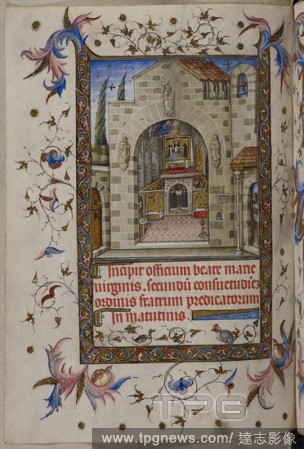 Incipit officium beate marie
virginis. secundū consuetudieȝ
ordinis fratrum predicatorum
In matutinis.
TPG
www.tpgnews.com/ 達志影像